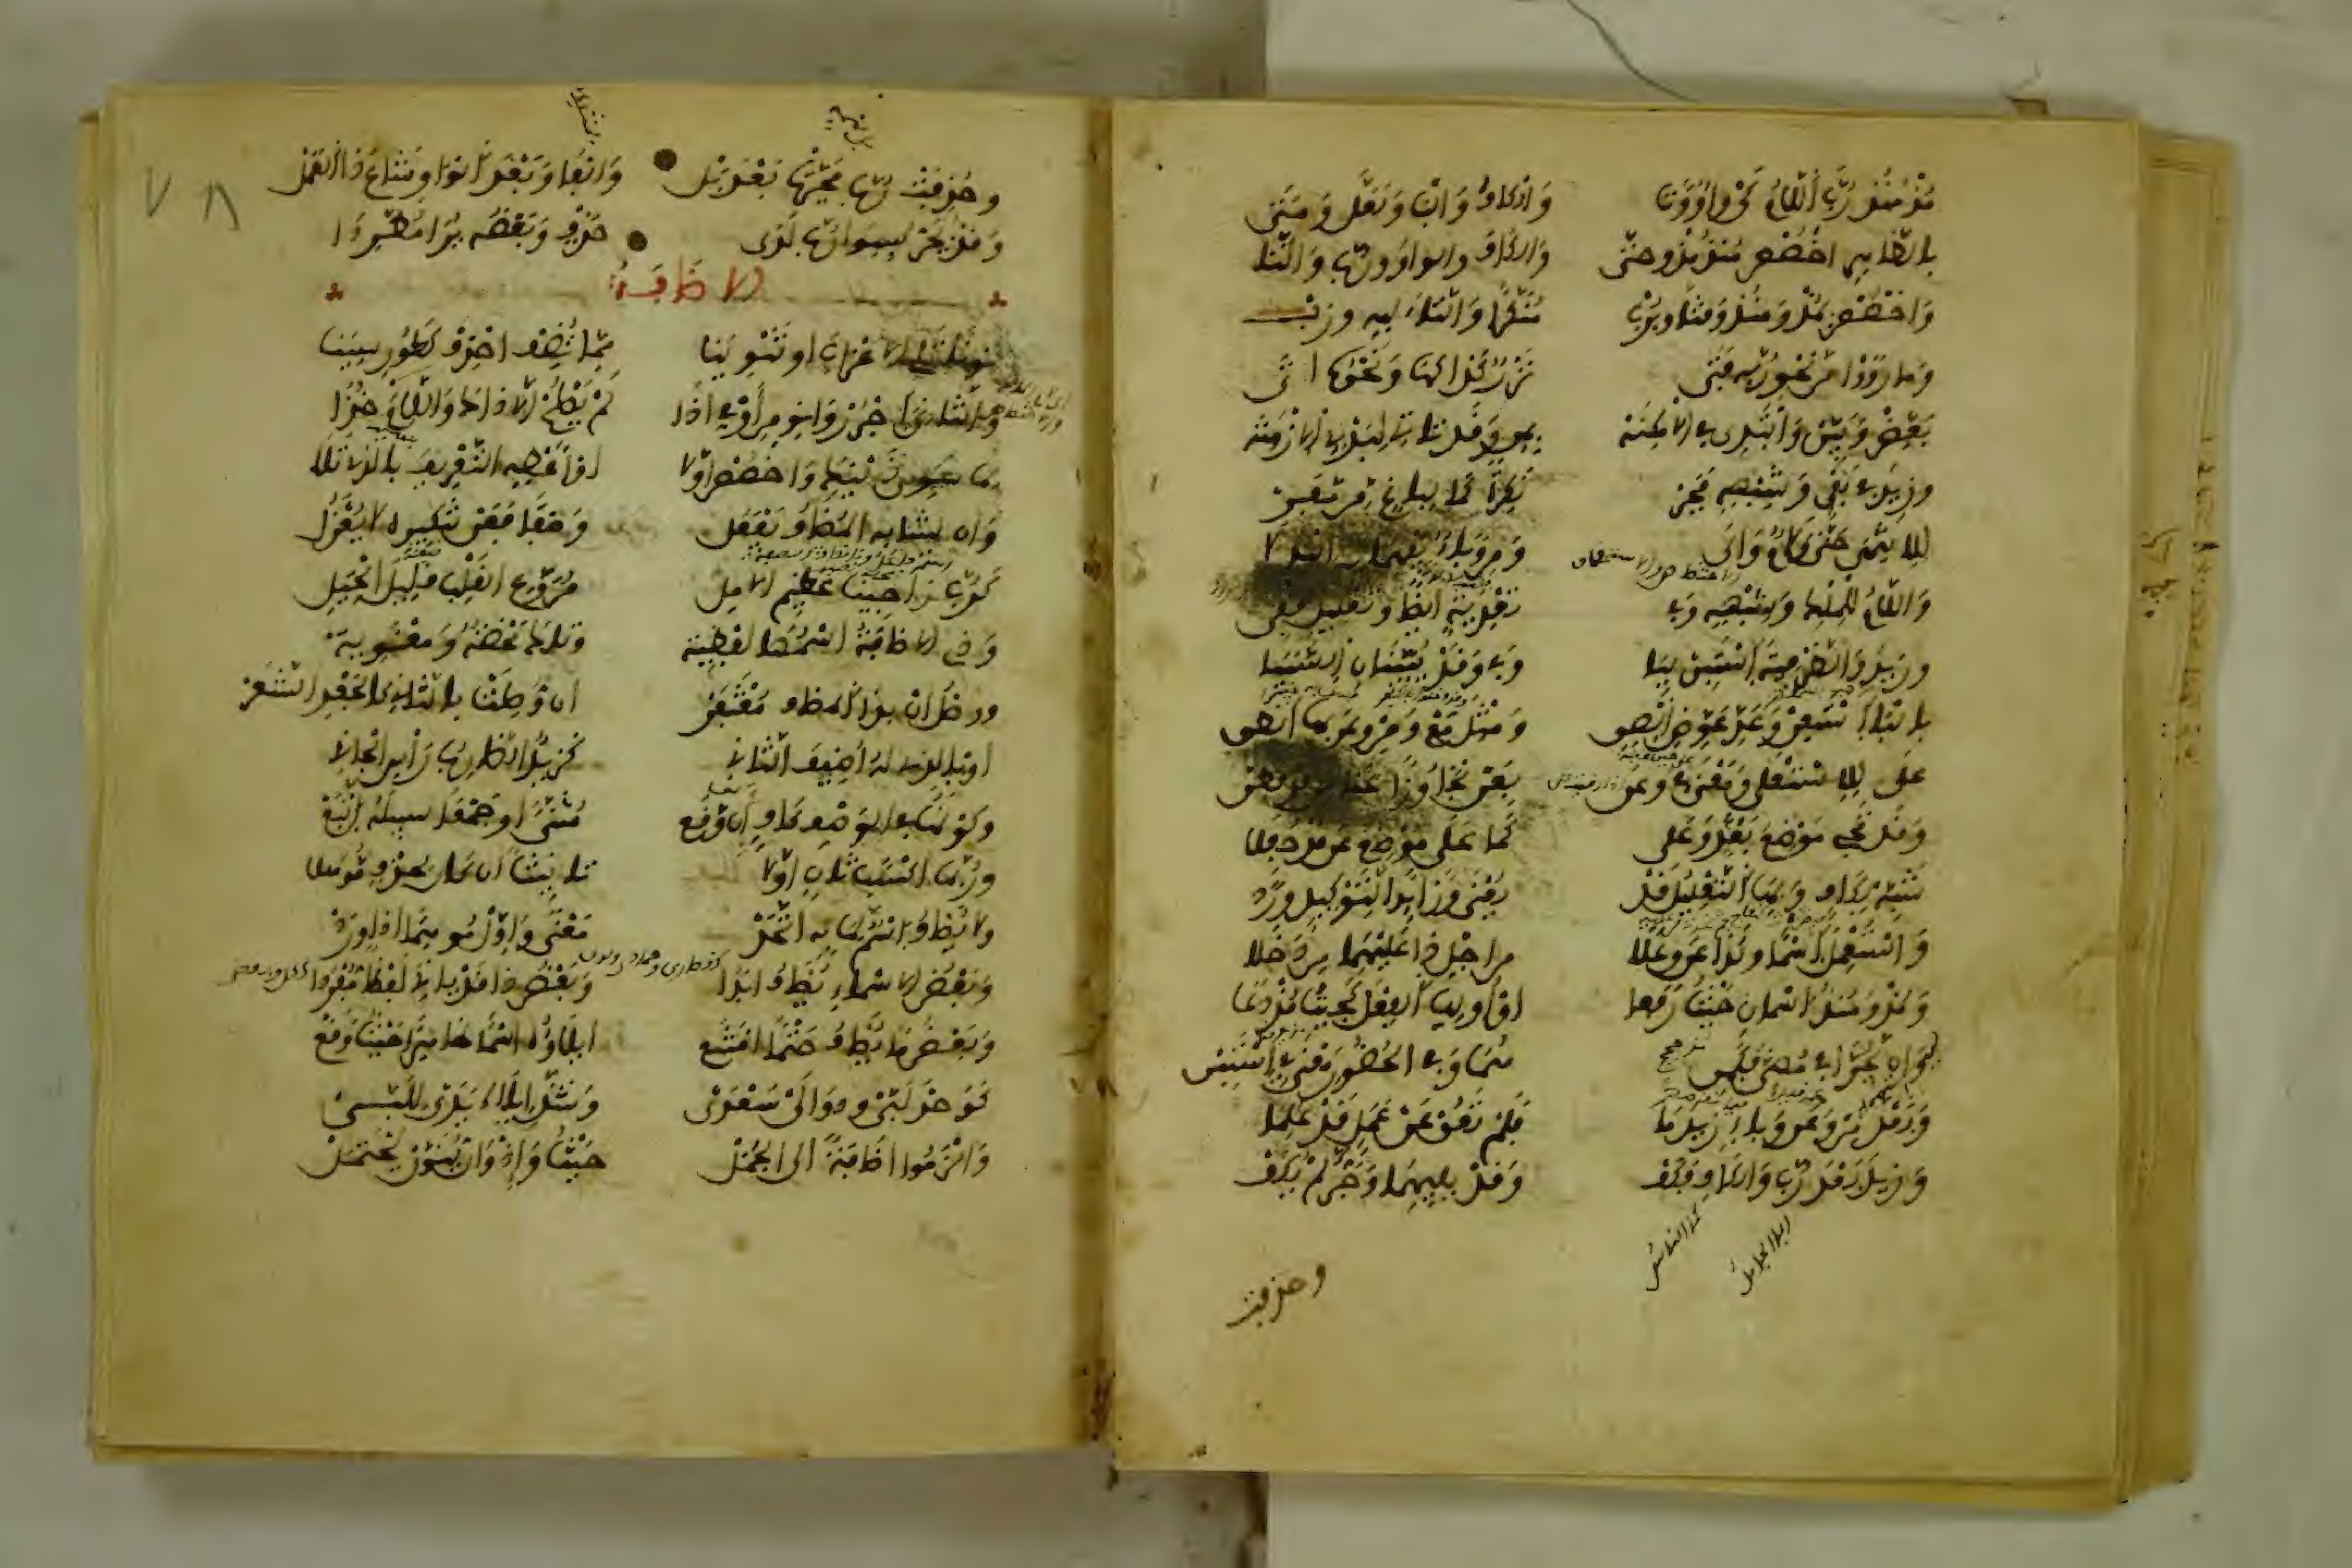 مُذْ مُنْذُ رُبَّ اللَّامُ كَيْ وَاوٌ وَتَا وَالكَافُ وَالبَا وَلَعَلَّ وَمَتَى
بالظاهر اخصص منذ مذ وحتى والكاف والواو ورب والتا
واخصص بمذ ومنذ وقتا وبرب منكرا والتاء لله ورب
وما رووا من نحو ربه فتى نزر كذا كها ونحوه اتى
بعض وبين وابتدئ في الامكنه بمن وقد تأتي لبدء الازمنه
وزيد في نفي وشبهه فجر نكرة كما لباغ من مفر
للانتهى حتى ولام والى ومن وباء يفهمان بدلا
واللام للملك وشبهه وفي تعدية ايضا وتعليل قفي
وزيد والظرفية استبن ببا وفي وقد يبينان السببا
بالبا استعن وعد عوض الصق ومثل مع ومن وعن بها انطق
على للاستعلى ومعنى في وعن بعن تجاوزا عنى من قد فطن
وقد تجي موضع بعد وعلى كما على موضع عن قد جعلا
شبه بكاف وبها التعليل قد يعنى وزائدا لتوكيد ورد
واستعمل اسما وكذا عن وعلا من اجل ذا عليهما من دخلا
ومذ ومنذ اسمان حيث رفعا او اوليا الفعل كجئت مذ دعا
وان يجرا في مضي فكمن هما وفي الحضور معنى في استبن
وبعد من وعن وباء زيد ما فلم تعق عن عمل قد علما
وزيد بعد رب والكاف فكف وقد يليهما وجر لم يكف
وحذفت
وحذفت رب فجرت بعد بل والفا وبعد الواو شاع ذا العمل
وقد يجر بسوى رب لدى حذف وبعضه يرا مطردا
الاضافة
نونا تلي الاعراب او تنوينا مما تضف احذف كطور سينا
والثاني اجرر وانو من او في اذا لم يصلح الا ذاك واللام خذا
لما سوى ذينك واخصص اولا او اعطه التعريف بالذي تلا
وان يشابه المضاف يفعل وصفا فعن تنكيره لا يعزل
كرب راجينا عظيم الامل مروع القلب قليل الحيل
وذي الاضافة اسمها لفظيه وتلك محضة ومعنويه
ووصل ال بذا المضاف مغتفر ان وصلت بالثان كالجعد الشعر
او بالذي له اضيف الثاني كزيد الضارب راس الجاني
وكونها في الوصف كاف ان وقع مثنى او جمعا سبيله اتبع
وربما اكسب ثان اولا تانيثا ان كان لحذف موهلا
ولا يضاف اسم لما به اتحد معنى واول موهما اذا ورد
وبعض الاسماء يضاف ابدا وبعض ذا قد يات لفظا مفردا
وبعض ما يضاف حتما امتنع ايلاؤه اسما ظاهرا حيث وقع
كوحد لبي ودوالي سعدي وشذ ايلاء يدي للبي
والزموا اضافة الى الجمل حيث واذ وان ينون يحتمل